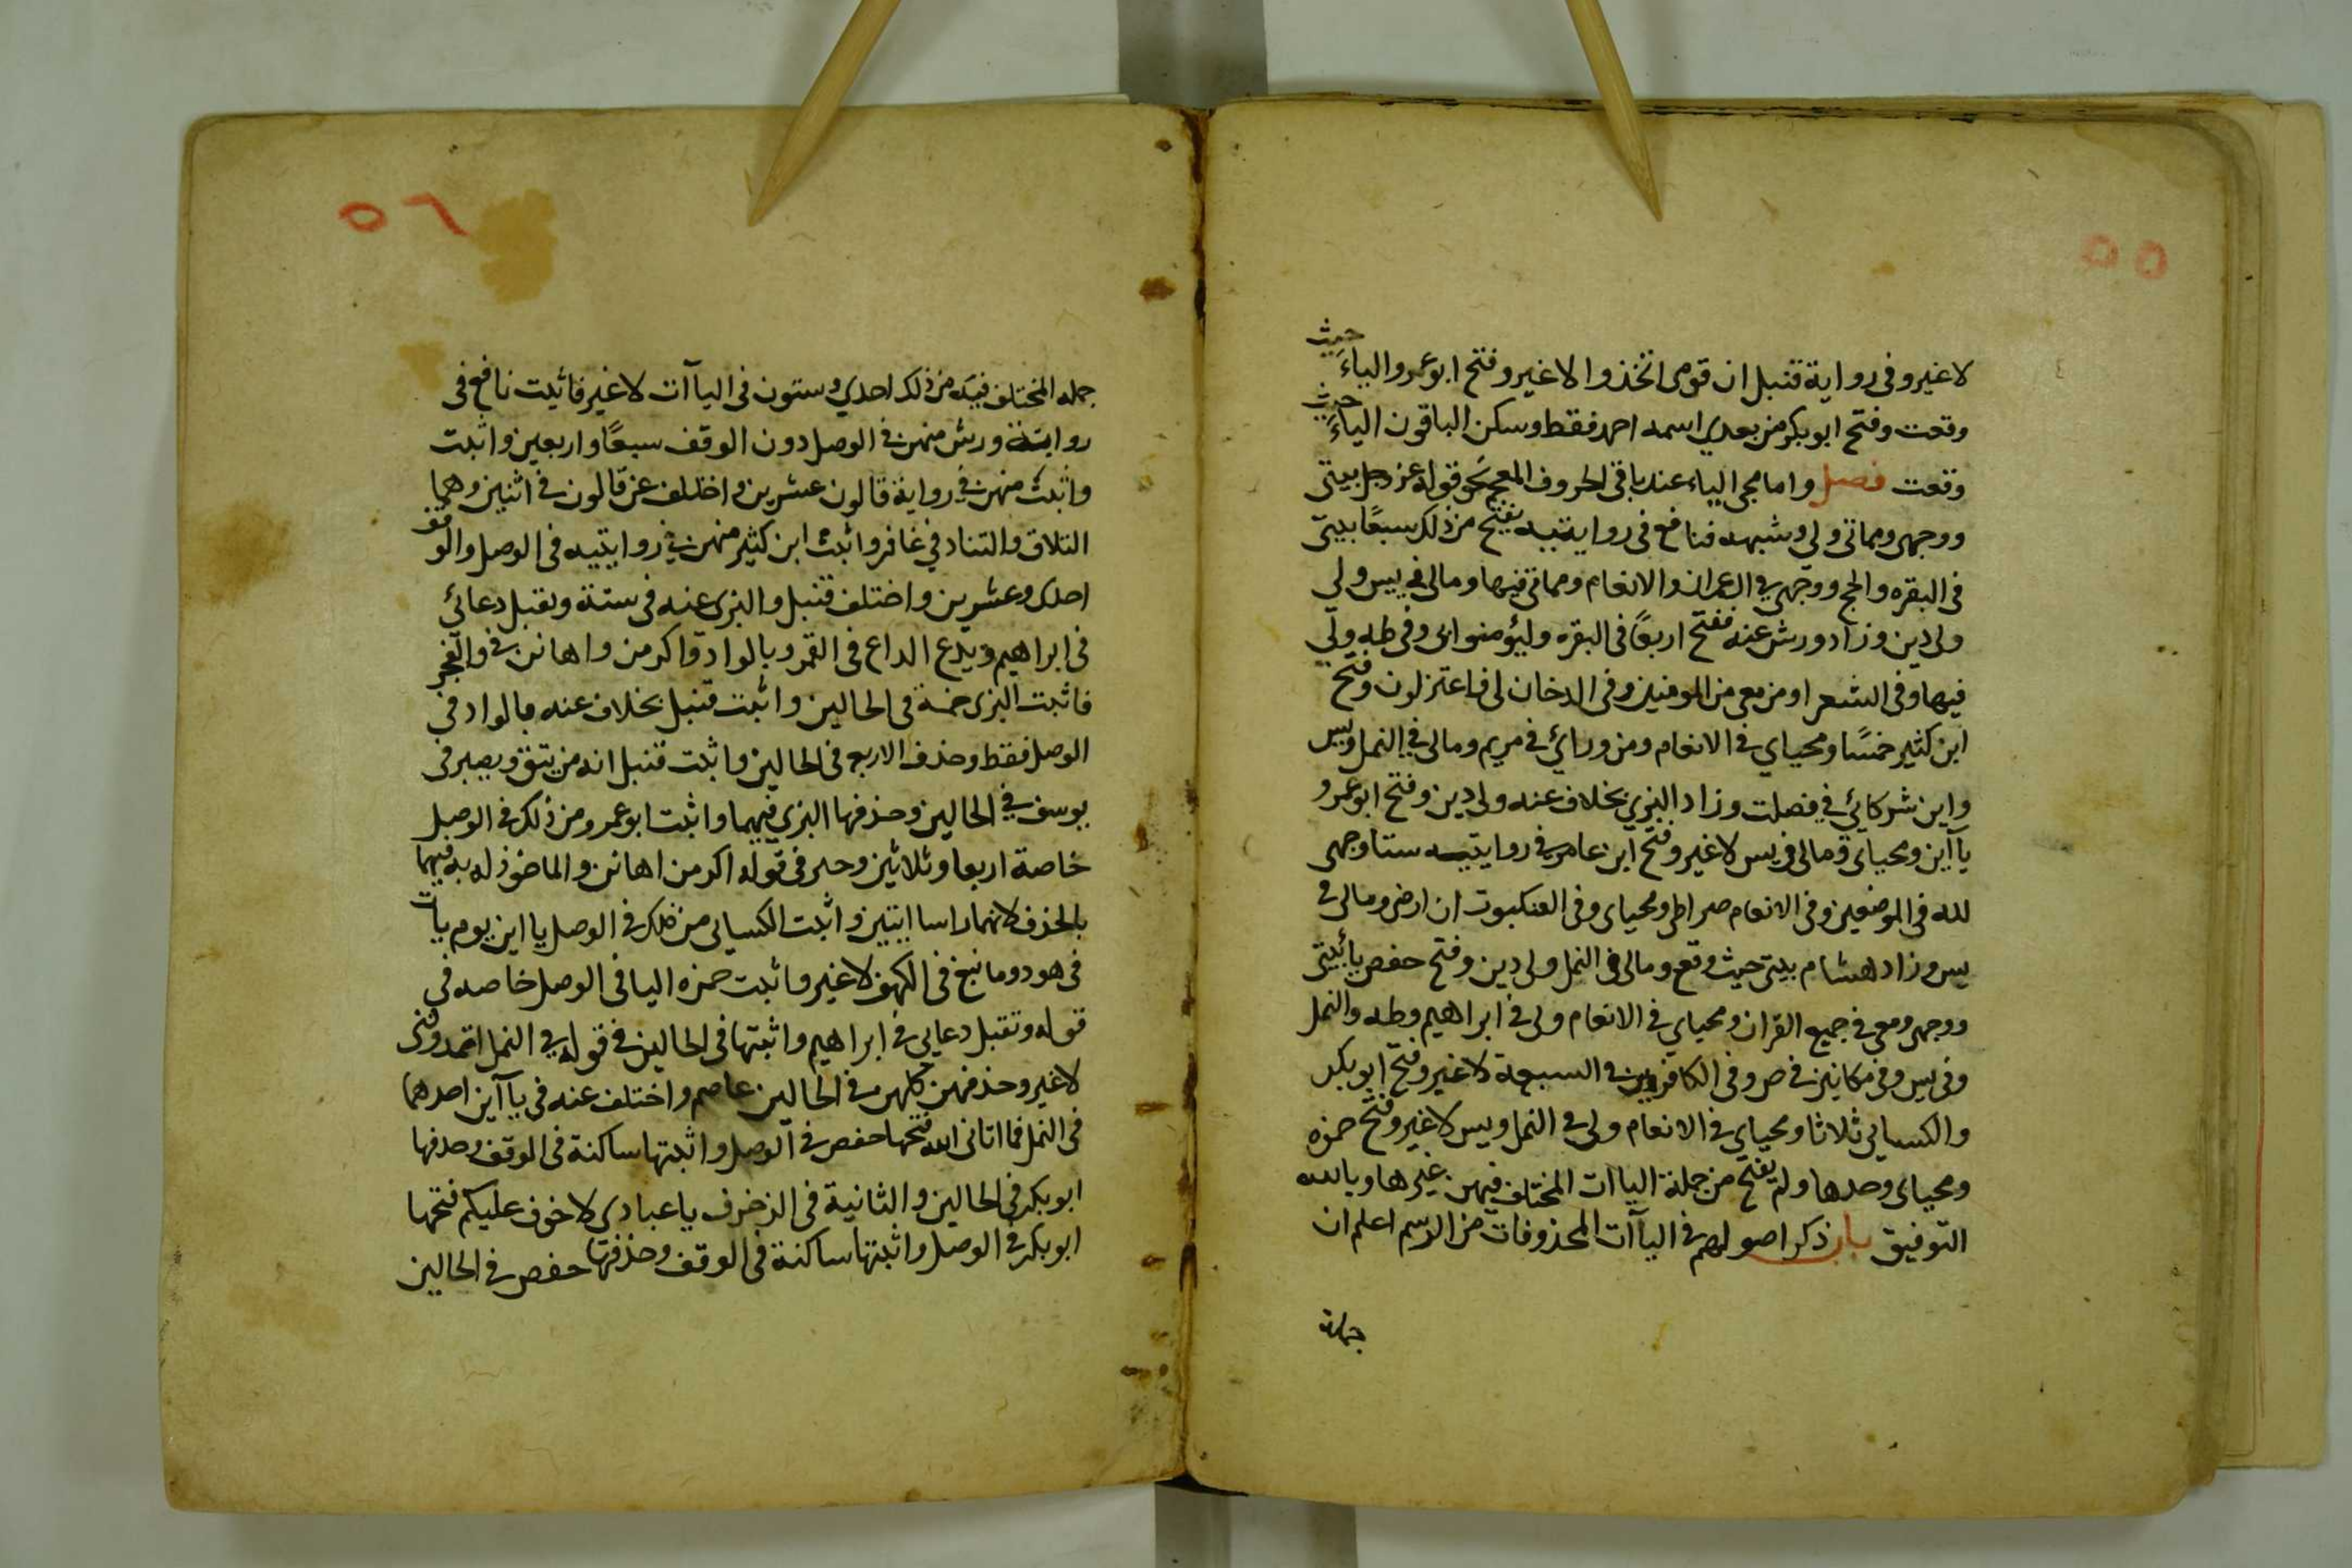 ٥٥
لا غير وفى رواية قنبل ان قومى اتخذوا لا غير وفتح ابو عمرو الياء حيث
وقعت وفتح ابو بكر من بعدي اسمه احمد فقط وسكن الباقون الياء حيث
وقعت فصل واما مجى الياء عند باقى الحروف المعجم نحو قوله عز وجل بيتى
ووجهى ومماتى ولي وشبهه فنافع فى روايتيه يفتح من ذلك سبعًا بيتى
فى البقره والحج ووجهى في ال عمران والانعام ومماتى فيها ومالى في يس ولي
ولى دين وزاد ورش عنه ففتح اربعًا فى البقره وليؤمنوا بى وفى طه ولى
فيها وفى الشعرا ومن معى من المومنين وفى الدخان لى فاعتزلون وفتح
ابن كثير خمسًا ومحياي في الانعام ومن ورائي في مريم ومالى في النمل ويس
واين شركائي في فصلت وزاد البزي بخلاف عنه ولى دين وفتح ابو عمرو
ياآين ومحياى ومالى فى يس لا غير وفتح ابن عامر فى روايتيه ستا وجهى
لله فى الموضعين وفى الانعام صراطى ومحياى وفى العنكبوت ان ارضى ومالى في
يس وزاد هشام بيتى حيث وقع ومالى فى النمل ولى دين وفتح حفص يا بيتى
ووجهى ومعى فى جميع القران ومحياي في الانعام ولى فى ابراهيم وطه والنمل
وفى يس وفى مكانين فى ص وفى الكافرين في السبعة لا غير وفتح ابو بكر
والكسايى ثلاثا ومحياي في الانعام ولى فى النمل ويس لا غير وفتح حمزه
ومحياى وحدها ولم يفتح من جملة الياات المختلف فيهن غيرها وبالله
التوفيق باب ذكر اصولهم فى الياآت المحذوفات من الرسم اعلم ان
جملة
٥٦
جمله المختلف فيه من ذلك احدي وستون فى الياآت لا غير فاثبت نافع فى
رواية ورش منهن فى الوصل دون الوقف سبعًا واربعين واثبت
واثبت منهن فى رواية قالون عشرين واختلف عن قالون فى اثنين وهما
التلاق والتناد في غافر واثبت ابن كثير منهن فى روايتيه فى الوصل والوقف
احدى وعشرين واختلف قنبل والبزى عنه فى ستة وتقبل دعائي
فى ابراهيم ويدع الداع فى القمر وبالواد واكرمن واهانن فى والفجر
فاثبت البزى خمسة فى الحالين واثبت قنبل بخلاف عنه بالواد فى
الوصل فقط وحذف الاربع فى الحالين واثبت قنبل انه من يتق ويصبر فى
يوسف فى الحالين وحذفها البزى فيهما واثبت ابو عمرو من ذلك فى الوصل
خاصة اربعا وثلاثين وخير فى قوله اكرمن اهانن والماخوذ له به فيهما
بالحذف لانهما راسا ايتين واثبت الكسايى من ذلك فى الوصل ياءين يوم يات
فى هود وما نبغ فى الكهف لا غير واثبت حمزه اليا فى الوصل خاصه فى
قوله وتقبل دعايى فى ابراهيم واثبتها فى الحالين فى قوله فى النمل اتمدونى
لا غير وحذفهن كلهن فى الحالين عاصم واختلف عنه فى ياآين احدهما
فى النمل فما اتانى الله فتحها حفص فى الوصل واثبتها ساكنة فى الوقف وحذفها
ابو بكر فى الحالين والثانية فى الزخرف يا عبادى لا خوف عليكم فتحها
ابو بكر فى الوصل واثبتها ساكنة فى الوقف وحذفها حفص فى الحالين